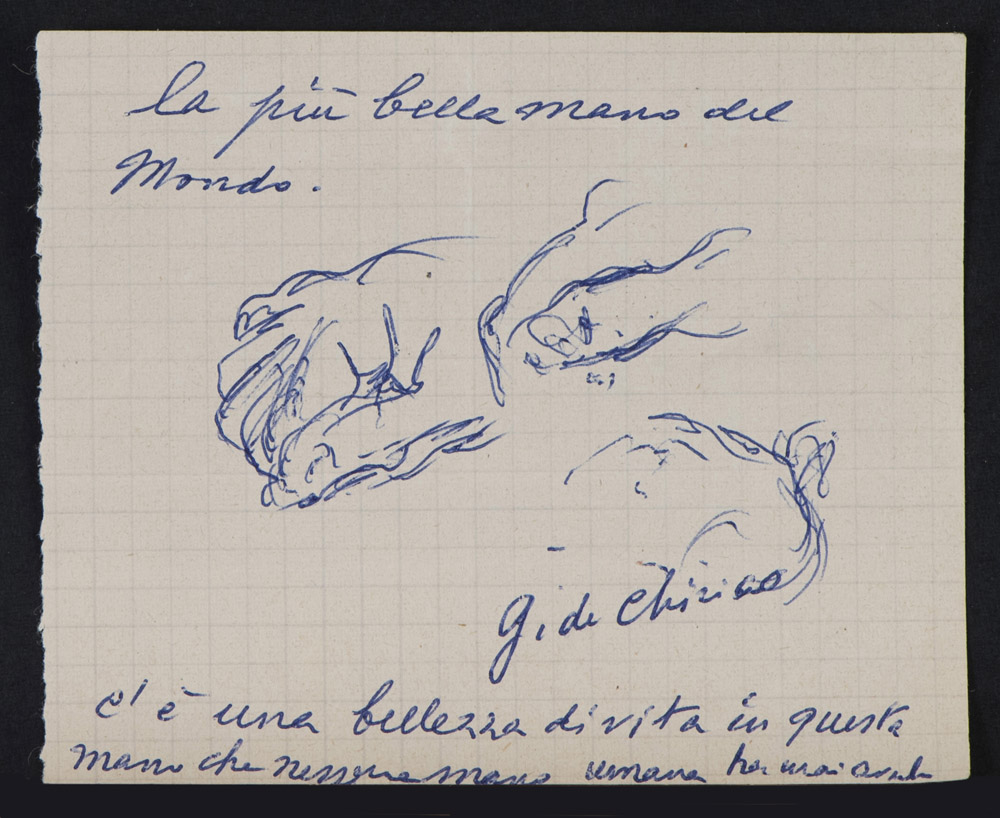 la più bella mano del
Mondo.
G. de Chirico
c'è una bellezza di vita in questa
mano che nessuna mano umana ha mai avuto